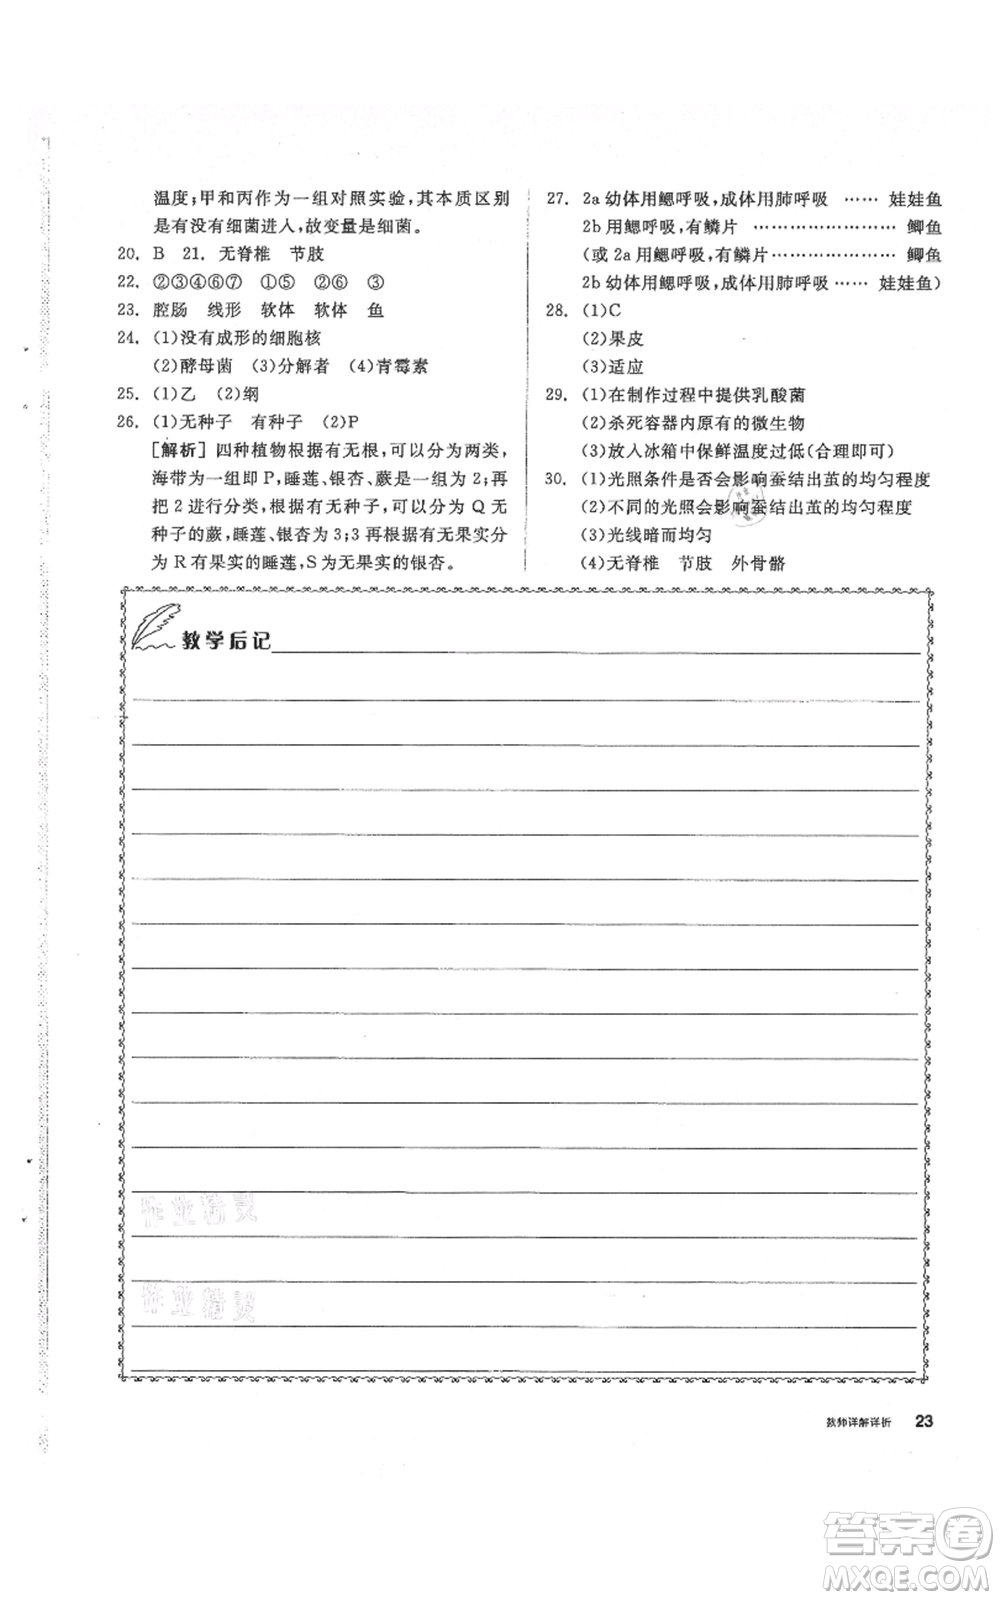 温度;甲和丙作为一组对照实验,其本质区别
是有没有细菌进人,故变量是细菌。
20. B 21. 无脊椎 节肢
22. ②③④⑥⑦ ①⑤ ②⑥ ③
23. 腔肠 线形 软体 软体 鱼
24. (1)没有成形的细胞核
(2)酵母菌 (3)分解者 (4)青霉素
25. (1)乙 (2)纲
26. (1)无种子 有种子 (2)P
[解析] 四种植物根据有无根,可以分为两类,
海带为一组即 P,睡莲、银杏、蕨为一组是 2;再
把 2 进行分类,根据有无种子,可以分成 Q 无
种子的蕨,睡莲、银杏为 3;3 再根据有无果实分
为 R 有果实的睡莲,S 为无果实的银杏。
27. 2a 幼体用鳃呼吸,成体用肺呼吸 …… 娃娃鱼
2b 用鳃呼吸,有鳞片 …………………… 鲫鱼
(或 2a 用鳃呼吸,有鳞片………………… 鲫鱼
2b 幼体用鳃呼吸,成体用肺呼吸…… 娃娃鱼)
28. (1)C
(2)果皮
(3)适应
29. (1)在制作过程中提供乳酸菌
(2)杀死容器内原有的微生物
(3)放入冰箱中保鲜温度过低(合理即可)
30. (1)光照条件是否会影响蚕结出茧的均匀程度
(2)不同的光照会影响蚕结出茧的均匀程度
(3)光线暗而均匀
(4)无脊椎 节肢 外骨骼
教学后记
作业精灵
作业精灵
教师详解详析 23
答案圈
MXQE.COM